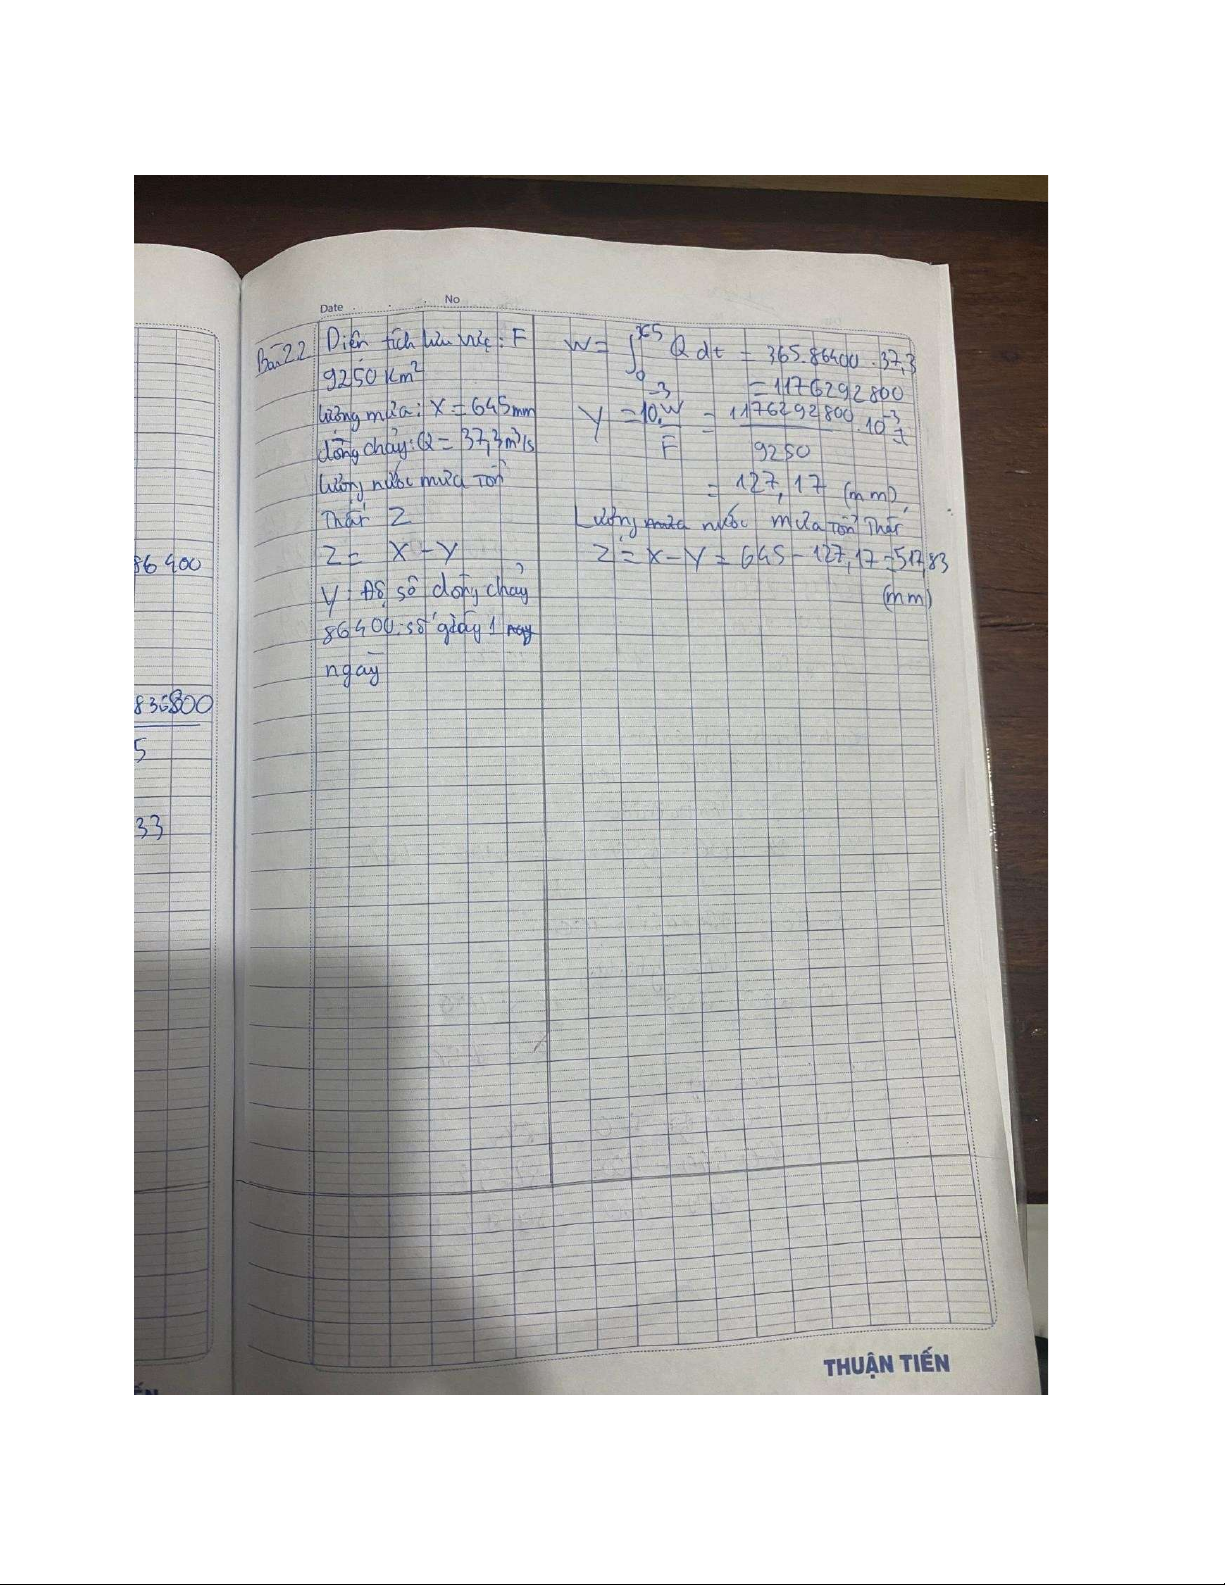 Date No
Bài 2.2
Diện tích lưu vực : F
9250 Km²
lượng mưa : X = 645mm
dòng chảy : Q = 37,3m³/s
lượng nước mưa tổn
Thất Z
Z = X - Y
Y : Độ sô dòng chảy
86400 : số giây 1
ngày
W = ∫₀³⁶⁵ Q dt = 365.86400.37,3
= 1176292800
Y = 10⁻³.W / F = 1176292800.10⁻³ / 9250 =
= 127,17 (mm)
Lượng nước mưa tổn Thất
Z = X - Y = 645 - 127,17 = 517,83
(mm)
86 400
836800
5
33
THUẬN TIẾN
ẾN